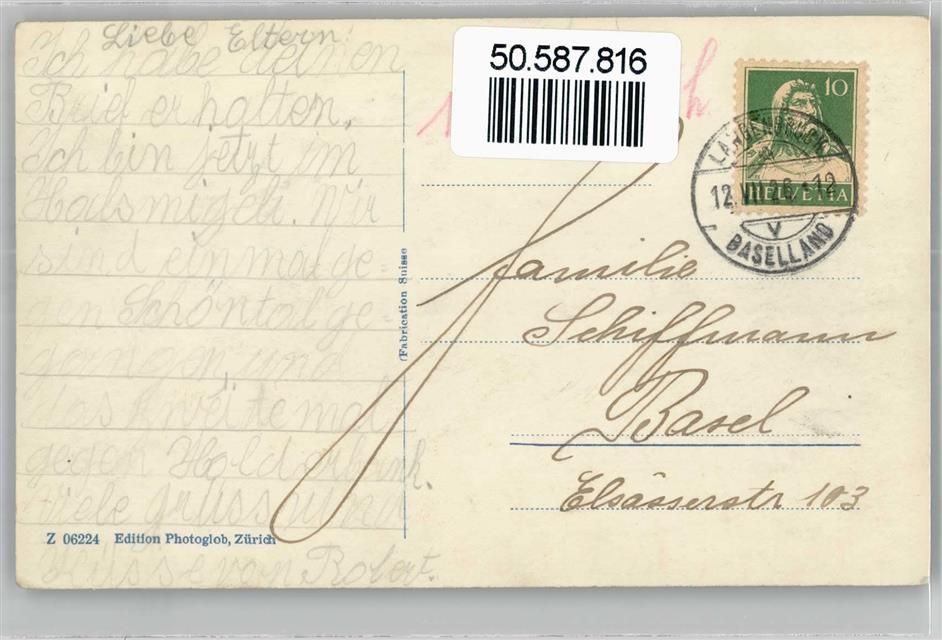 Liebe Eltern!
Ich habe deinen
Brief erhalten.
Ich bin jetzt im
Haus migeli. Wir
sind einmal ge-
gen Schöntal ge-
gangen und
das zweite mal
gegen Holderbank.
Viele Grüsse und
Küsse von Robert.
Z 06224 Edition Photoglob, Zürich
Fabrication Suisse
50.587.816
h
10
HELVETIA
LANGENBRUCK
12.VII.26.-12
V
BASELLAND
Familie
Schiffmann
Basel
Elsässerstr 103